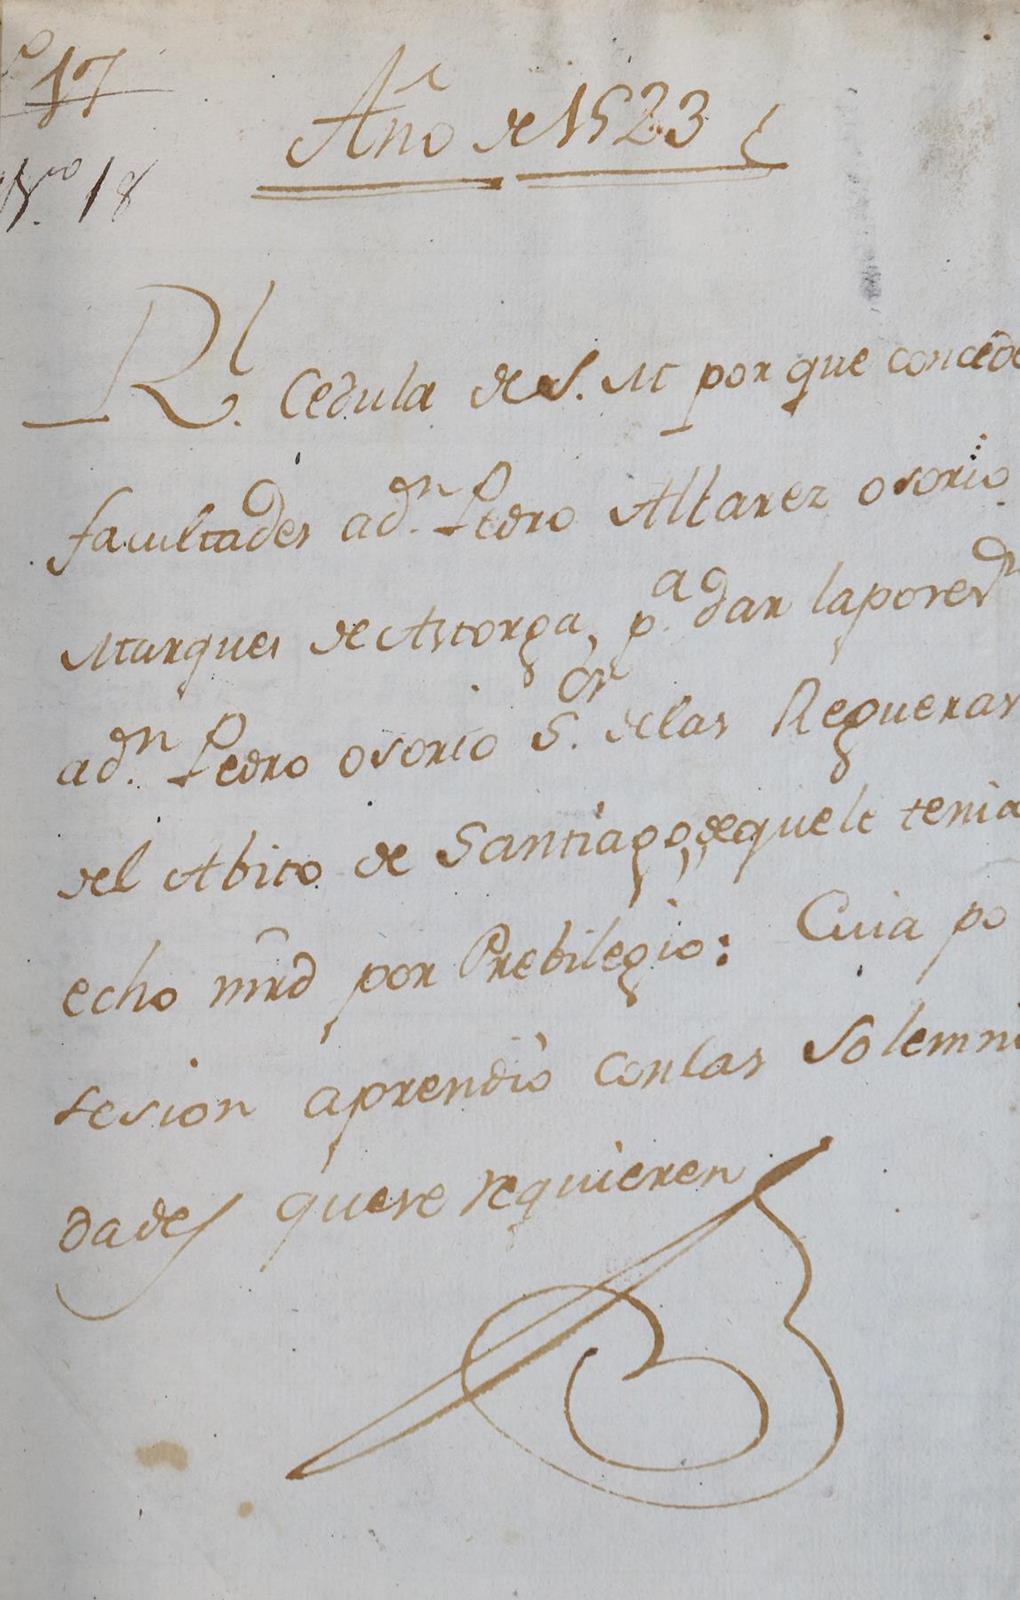 º 17
Nro. 18
Año de 1523
Rl. Cedula de S. M por que concede
facultades a dn. Pedro Albarez osorio
Marques de Astorga, pa. dar la poses.n
a dn. Pedro osorio Sor. de las Regueras
del Abito de Santiago, de que le tenia
echo mrd por Prebilegio: Cuia po
sesion aprendio con las Solemni
dades que se requieren